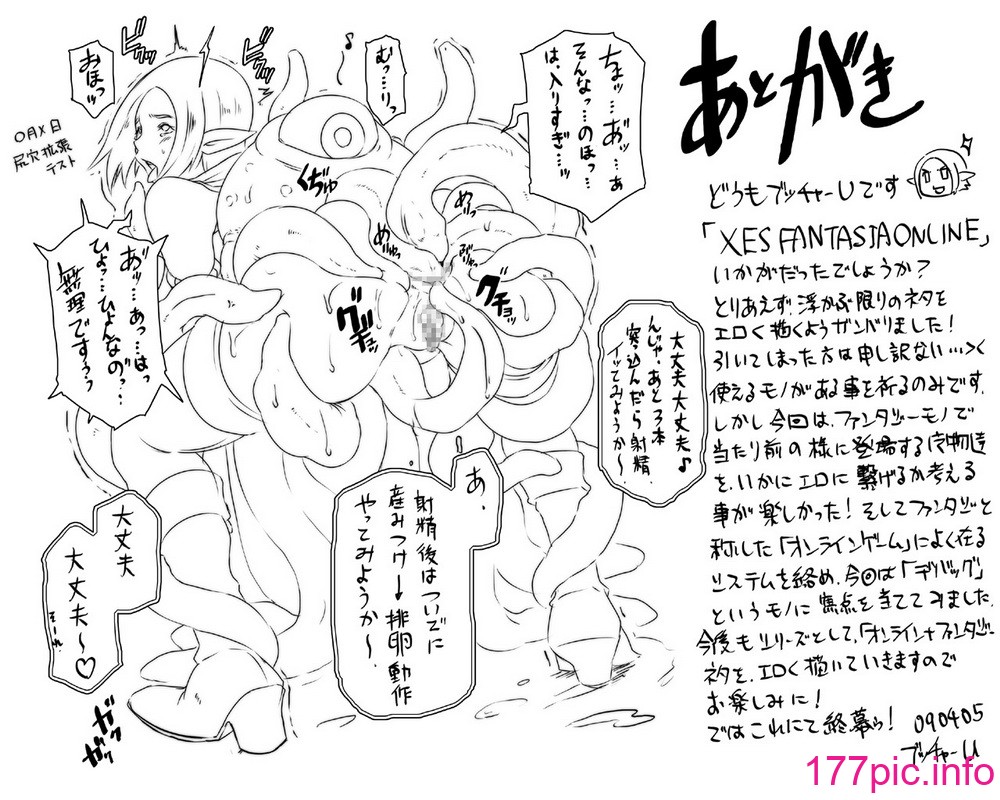 あとがき
どうもブッチャーUです
「XES FANTASIA ONLINE」
いかがだったでしょうか?
とりあえず浮かぶ限りのネタを
エロく描くようガンバりました!
引いてしまった方は申し訳ない…><
使えるモノがある事を祈るのみです.
しかし今回は、ファンタジーモノで
当たり前の様に登場する化物達
を、いかにエロに繋げるか考える
事が楽しかった!そしてファンタジーと
称した「オンラインゲーム」によく在る
システムを絡め、今回は「デバッグ」
というモノに焦点を当ててみました.
今後もシリーズとして、「オンライン+ファンタジー」
ネタを、エロく描いていきますので
お楽しみに!
ではこれにて終幕ッ!
090405
ブッチャーU
ちょッ…あッ…あ
そんなっ…のほっ…
は、入りすぎ…ッ
むっ…りっ
♪
おほっッ
ビクッ
ビクッ
〇月×日
尻穴拡張
テスト
あッ…あっ…はっ
ひょっ…ひょんなの?…
無理ですぅ?っ
大丈夫大丈夫♪
んじゃ、あと3本
突っ込んだら射精.
イッてみようか~
あ、
射精後はついでに
産みつけ→排卵動作
やってみようか~.
大丈夫
大丈夫~♡
そーれ
ぐぢゅ
めゅっ
めゅっ
ぢゅっ
グギュッ
グチョッ
ガクガク
177pic.info